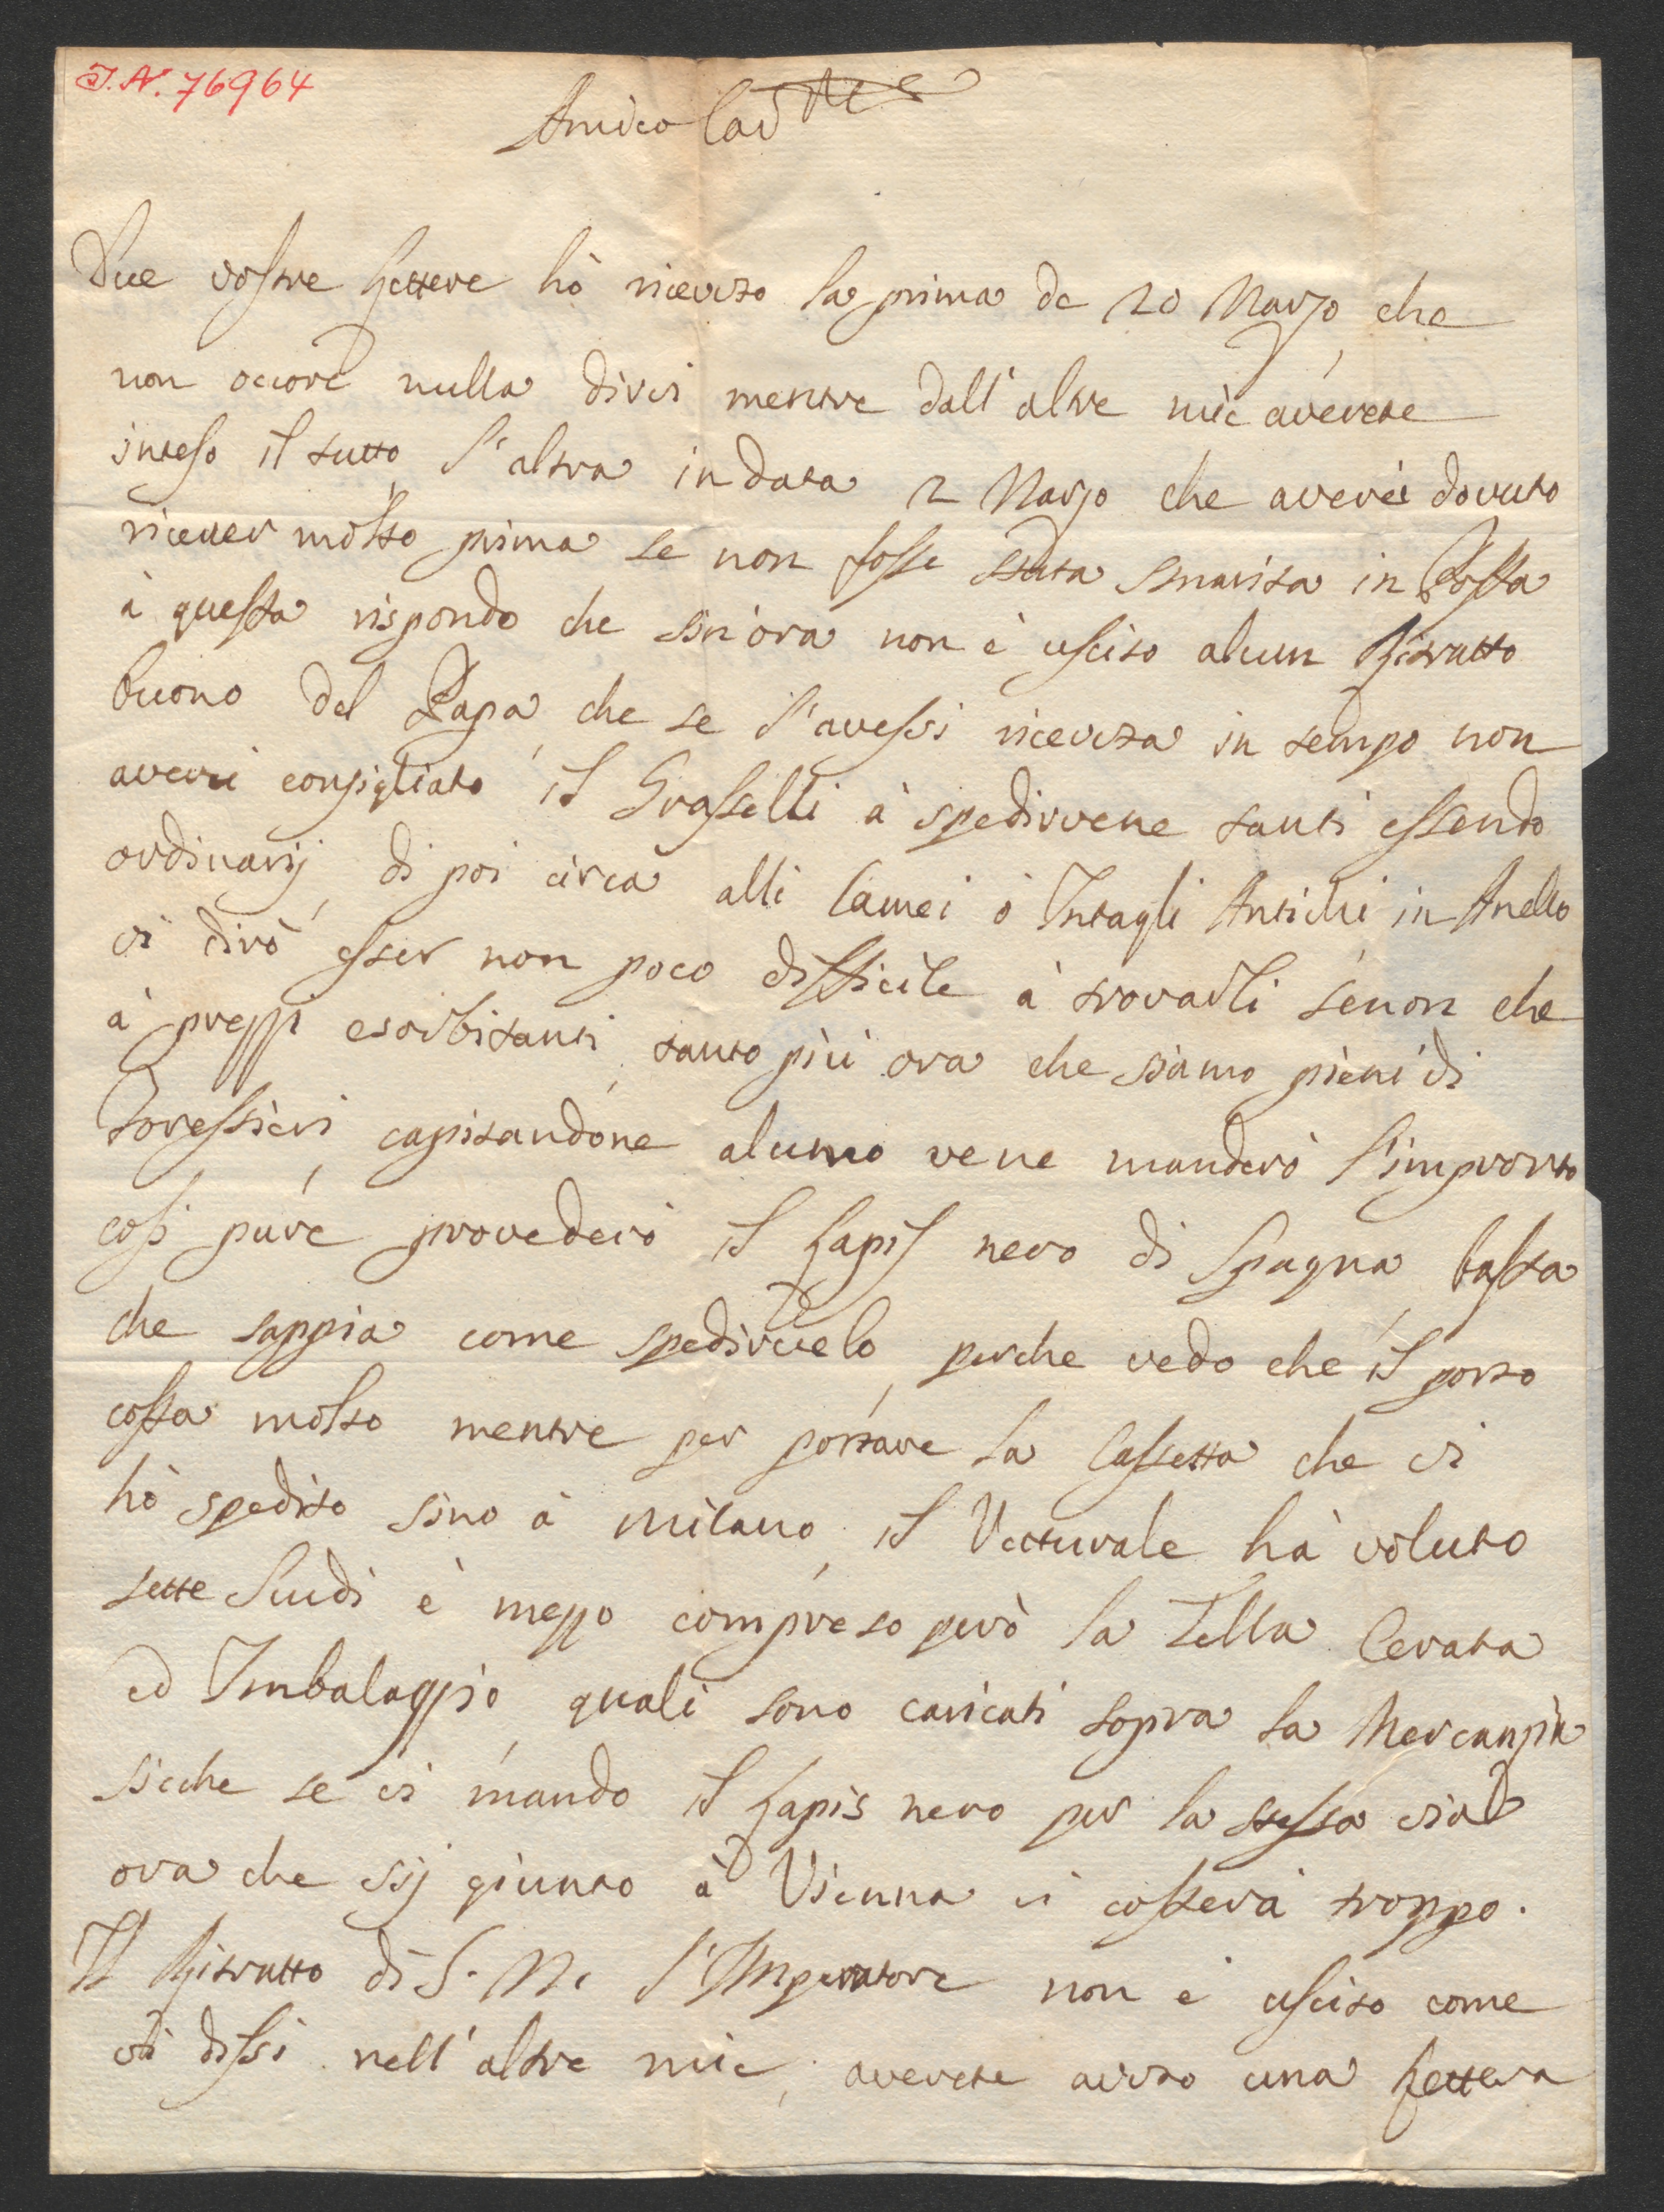 I.N. 76964
Amico Car.mo
Due vostre Lettere hò ricevuto la prima de 20 Marzo, che
non occore nulla dirvi mentre dall'altre mie averete
inteso il tutto, l'altra in data 2 Marzo che averei dovuto
ricever molto prima se non fosse stata smarita in Posta
à questa rispondo che sin'ora non è uscito alcun Ritratto
buono del Papa, che se l'avessi ricevuta in tempo non
averei consigliato il Grasselli à spedirvene tanti essendo
ordinarij, di poi circa alli Camei ò Intagli Antichi in Anello
vi dirò esser non poco difficile à trovarli senon che
à prezzi esorbitanti, tanto più ora che siamo pieni di
Forestieri, capitandone alcuno vene manderò l'impronto
così pure provederò il Lapis nero di Spagna, basta
che sappia come spedirvelo, perche vedo che il porto
costa molto mentre per portare la Cassetta che vi
hò spedito sino à Milano, il Vetturale hà voluto
sette Scudi è mezzo compreso però la Tella Cerata
ed Imbalaggio, quali sono caricati sopra la Mercanzia
sicche se vi mando il Lapis nero per la stessa via
ora che sij giunto à Vienna vi costerà troppo.
Il Ritratto di S. M. l'Imperatore non è uscito come
vi dissi nell'altre mie, averete avuto una Lettera